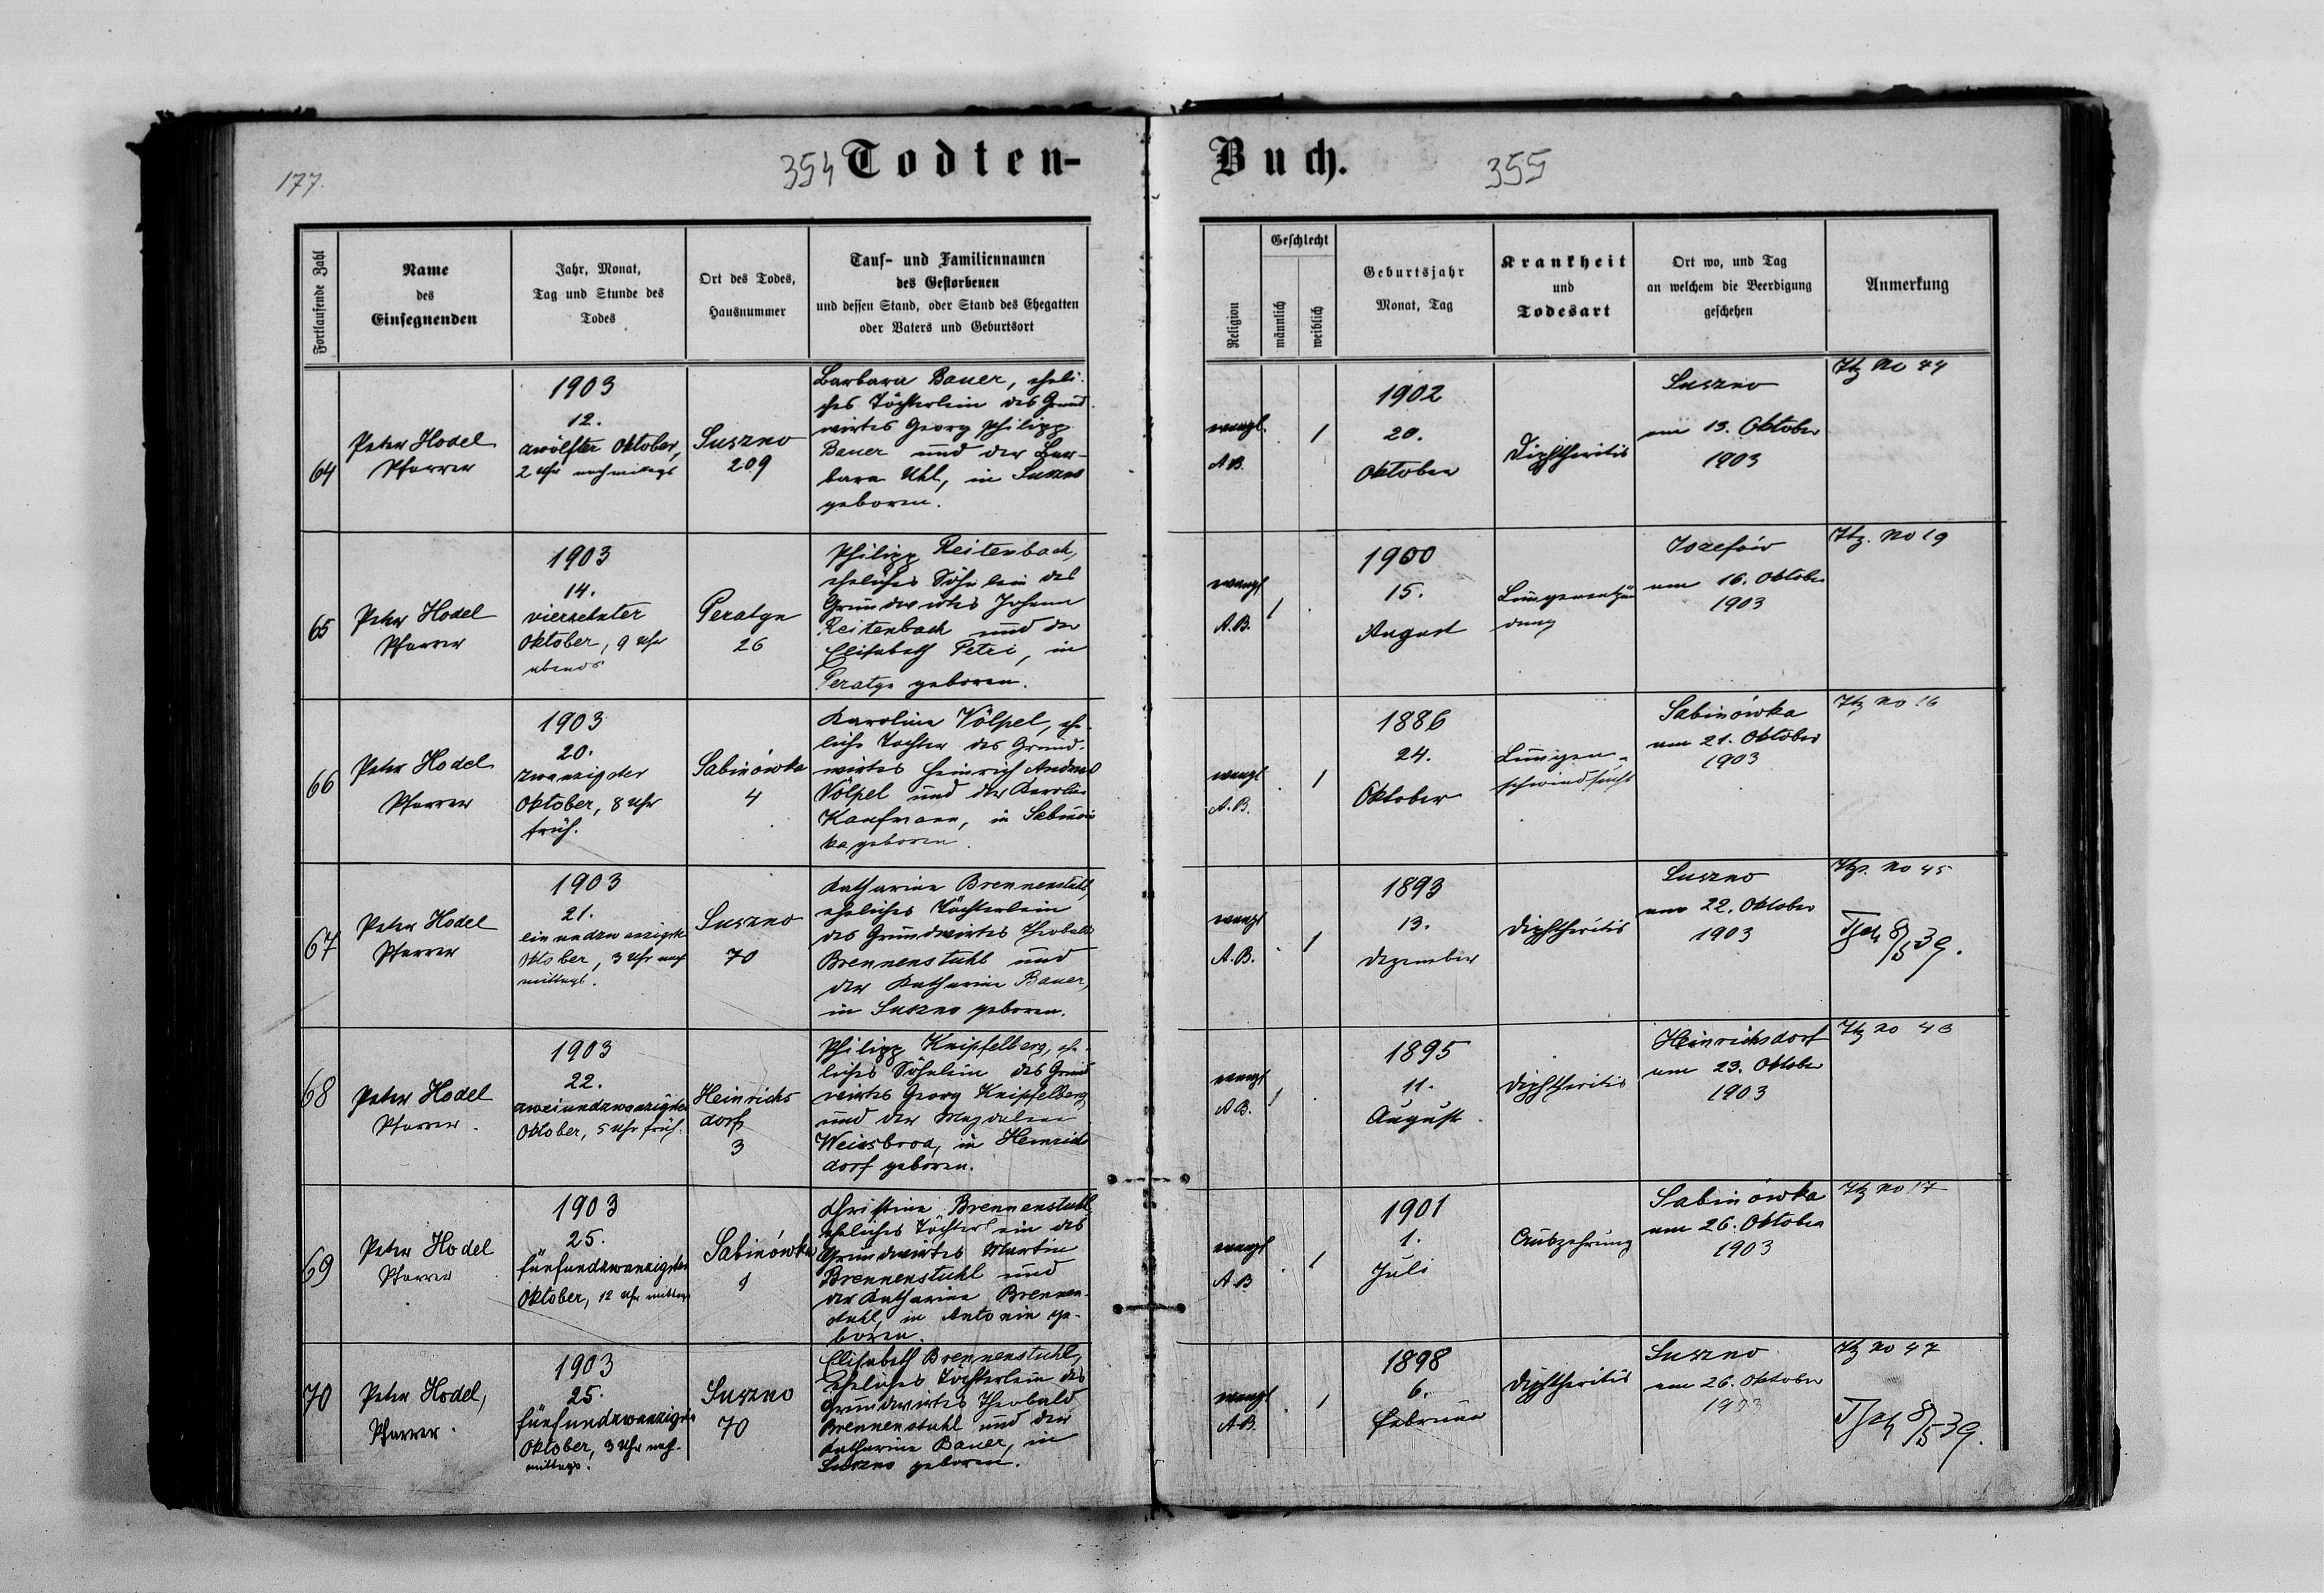 177.
354 Todten-
Fortlaufende Zahl
Name
des
Einsegnenden
Jahr, Monat,
Tag und Stunde des
Todes
Ort des Todes,
Hausnummer
Tauf- und Familiennamen
des Gestorbenen
und dessen Stand, oder Stand des Ehegatten
oder Vaters und Geburtsort
64
Peter Hodel
Pfarrer
1903
12.
zwölfter Oktober,
2 Uhr nachmittags
Suszno
209
Barbara Bauer, eheli-
ches Töchterlein des Grund-
wirtes Georg Philipp
Bauer und der Bar-
bara Uhl, in Suszno
geboren.
65
Peter Hodel
Pfarrer
1903
14.
vierzehnter
Oktober, 9 Uhr
abends
Peratyn
26
Philipp Reitenbach,
eheliches Söhnlein des
Grundwirtes Johann
Reitenbach und der
Elisabeth Petri, in
Peratyn geboren.
66
Peter Hodel
Pfarrer
1903
20.
zwanzigster
Oktober, 8 Uhr
früh.
Sabinówka
4
Karoline Völpel, ehe-
liche Tochter des Grund-
wirtes Heinrich Andreas
Völpel und der Karoline
Kaufmann, in Sabinów
ka geboren.
67
Peter Hodel
Pfarrer
1903
21.
einundzwanzigster
Oktober, 3 Uhr nach
mittags.
Suszno
70
Katharina Brennenstuhl,
eheliches Töchterlein
des Grundwirtes Theobald
Brennenstuhl und
der Katharina Bauer,
in Suszno geboren.
68
Peter Hodel
Pfarrer.
1903
22.
zweiundzwanzigster
Oktober, 5 Uhr früh.
Heinrichs
dorf
3
Philipp Knipfelberg, ehe-
liches Söhnlein des Grund
wirtes Georg Knipfelberg
und der Magdalena
Weissbrod, in Heinrichs
dorf geboren.
69
Peter Hodel
Pfarrer
1903
25.
fünfundzwanzigster
Oktober, 12 Uhr mittags
Sabinówka
1
Christina Brennenstuhl,
eheliches Töchterlein des
Grundwirtes Martin
Brennenstuhl und
der Katharina Brennen-
stuhl, in Antonin ge-
boren.
70
Peter Hodel,
Pfarrer.
1903
25.
fünfundzwanzigster
Oktober, 3 Uhr nach-
mittags.
Suszno
70
Elisabeth Brennenstuhl,
eheliches Töchterlein des
Grundwirtes Theobald
Brennenstuhl und der
Katharina Bauer, in
Suszno geboren.
Buch. 355
Religion
Geschlecht
männlich
weiblich
Geburtsjahr
Monat, Tag
Krankheit
und
Todesart
Ort wo, und Tag
an welchem die Beerdigung
geschehen
Anmerkung
evangl.
A.B.
1
1902
20.
Oktober
Diphtheritis
Suszno
am 13. Oktober
1903
No 44
evangl
A.B.
1
1900
15.
August
Lungenentzün
dung
Josefów
am 16. Oktober
1903
No 19
evangl
A.B.
1
1886
24.
Oktober
Lungen-
schwindsucht
Sabinówka
am 21. Oktober
1903
No 16
evangl
A.B.
1
1893
13.
Dezember
Diphtheritis
Suszno
am 22. Oktober
1903
No 45
8/5 39.
evangl
A.B.
1
1895
11.
August
Diphtheritis
Heinrichsdorf
am 23. Oktober
1903
No 43
evangl
A.B
1
1901
1.
Juli
Auszehrung
Sabinówka
am 26. Oktober
1903
No 17
evangl.
A.B.
1
1898
6.
Februar
Diphtheritis
Suszno
am 26. Oktober
1903
No 47
8/5 39.